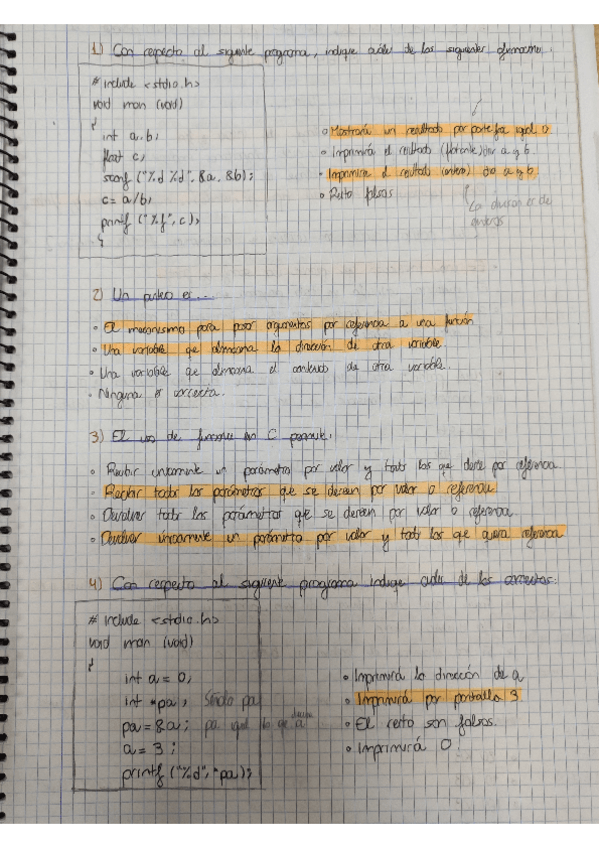 1) Con respecto al siguiente programa, indique cuáles de las siguientes afirmaciones:
# include <stdio.h>
void main (void)
{
int a,b;
float c;
scanf ("%d %d", &a, &b);
c= a/b;
printf ("%f", c);
}
• Mostrará un resultado por pantalla igual 0
• Imprimirá el resultado (flotante) div a y b.
• Imprimirá el resultado (entero) div a y b.
• Resto falsas
La división es de enteros
2) Un puntero es...
• El mecanismo para pasar argumentos por referencia a una función
• Una variable que almacena la dirección de otra variable.
• Una variable que almacena el contenido de otra variable.
• Ninguna es correcta.
3) El uso de funciones en C permite:
• Recibir únicamente un parámetro por valor y todos los que desee por referencia
• Recibir todos los parámetros que se deseen por valor o referencia
• Devolver todos los parámetros que se deseen por valor o referencia
• Devolver únicamente un parámetro por valor y todos los que quiera referencia
4) Con respecto al siguiente programa indique cuáles de los correctas:
# include <stdio.h>
void main (void)
{
int a = 0;
int *pa;
pa = &a;
a = 3;
printf ("%d", *pa);
• Imprimirá la dirección de a
• Imprimirá por pantalla 3
• El resto son falsas.
• Imprimirá 0